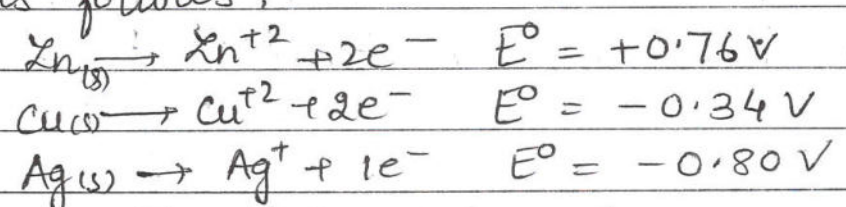 is follows :
Zn(s) → Zn⁺² + 2e⁻ E⁰ = +0.76 V
Cu(s) → Cu⁺² + 2e⁻ E⁰ = -0.34 V
Ag(s) → Ag⁺ + 1e⁻ E⁰ = -0.80 V